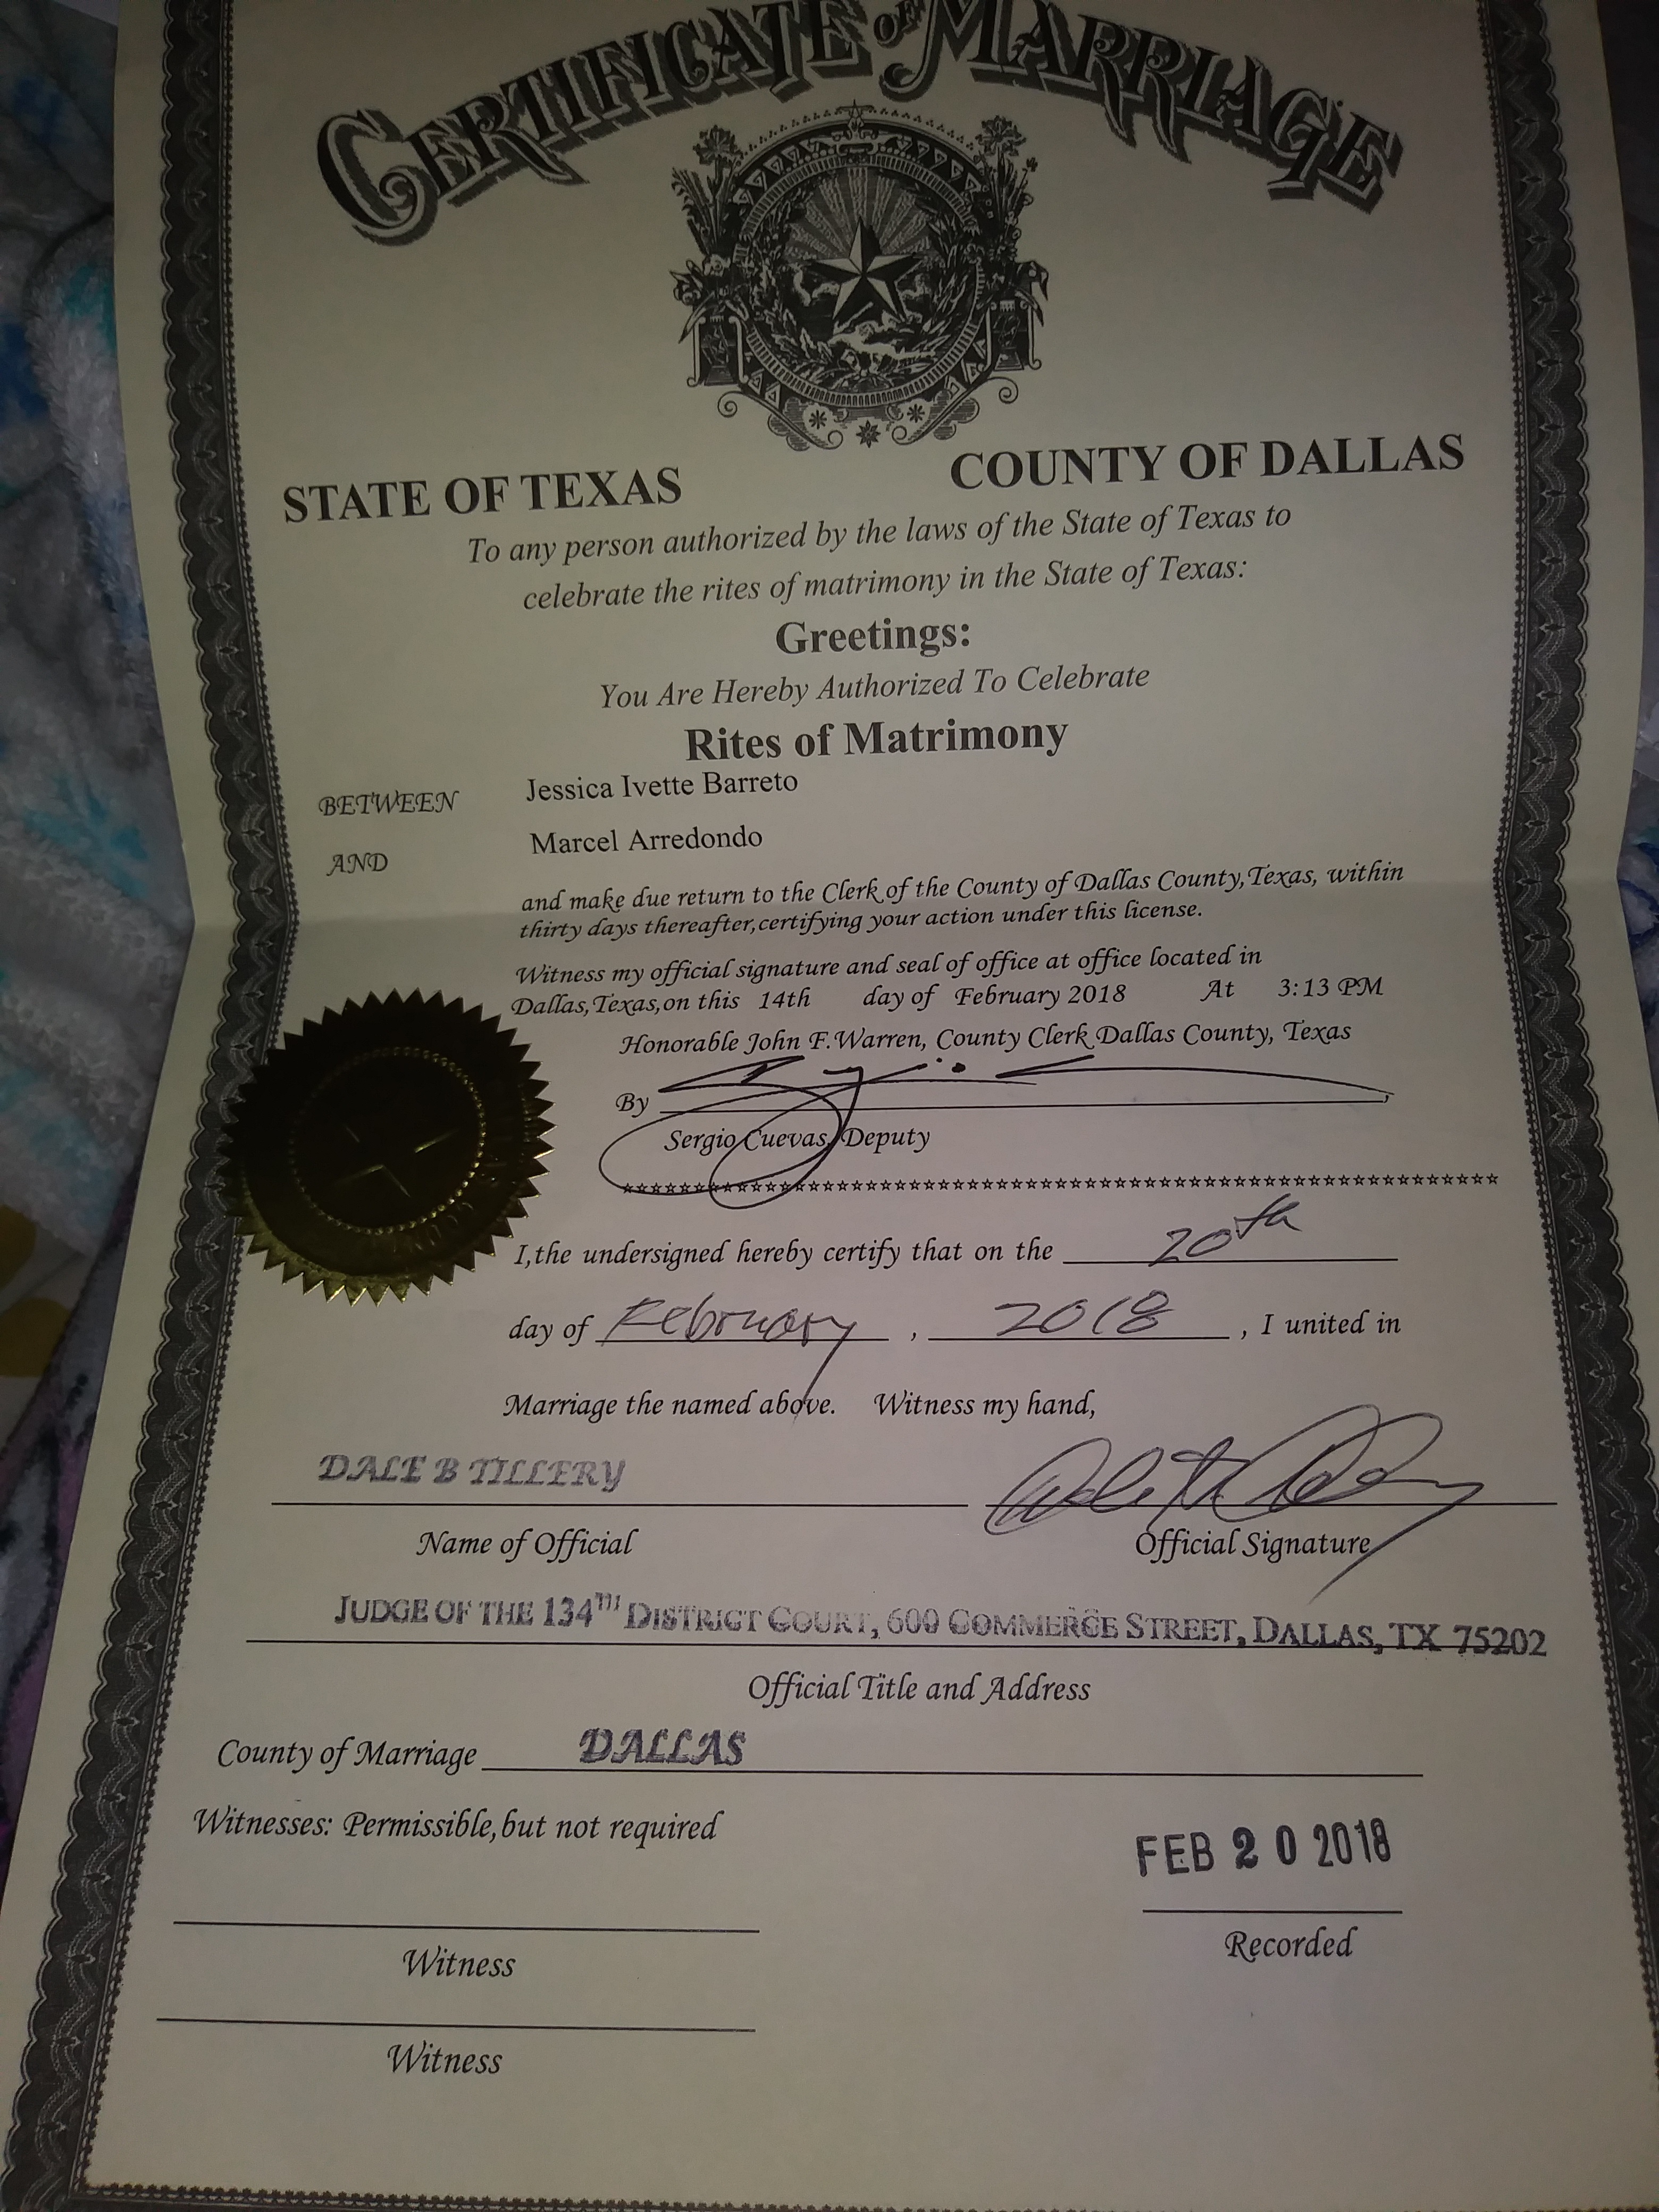 CERTIFICATE OF MARRIAGE
STATE OF TEXAS COUNTY OF DALLAS
To any person authorized by the laws of the State of Texas to
celebrate the rites of matrimony in the State of Texas:
Greetings:
You Are Hereby Authorized To Celebrate
Rites of Matrimony
BETWEEN Jessica Ivette Barreto
AND Marcel Arredondo
and make due return to the Clerk of the County of Dallas County,Texas, within
thirty days thereafter,certifying your action under this license.
Witness my official signature and seal of office at office located in
Dallas,Texas,on this 14th day of February 2018 At 3:13 PM
Honorable John F.Warren, County Clerk Dallas County, Texas
By
Sergio Cuevas, Deputy
I,the undersigned hereby certify that on the 20th
day of February , 2018 , I united in
Marriage the named above. Witness my hand,
DALE B TILLERY
Name of Official Official Signature
JUDGE OF THE 134TH DISTRICT COURT, 600 COMMERCE STREET, DALLAS, TX 75202
Official Title and Address
County of Marriage DALLAS
Witnesses: Permissible,but not required
FEB 20 2018
Recorded
Witness
Witness